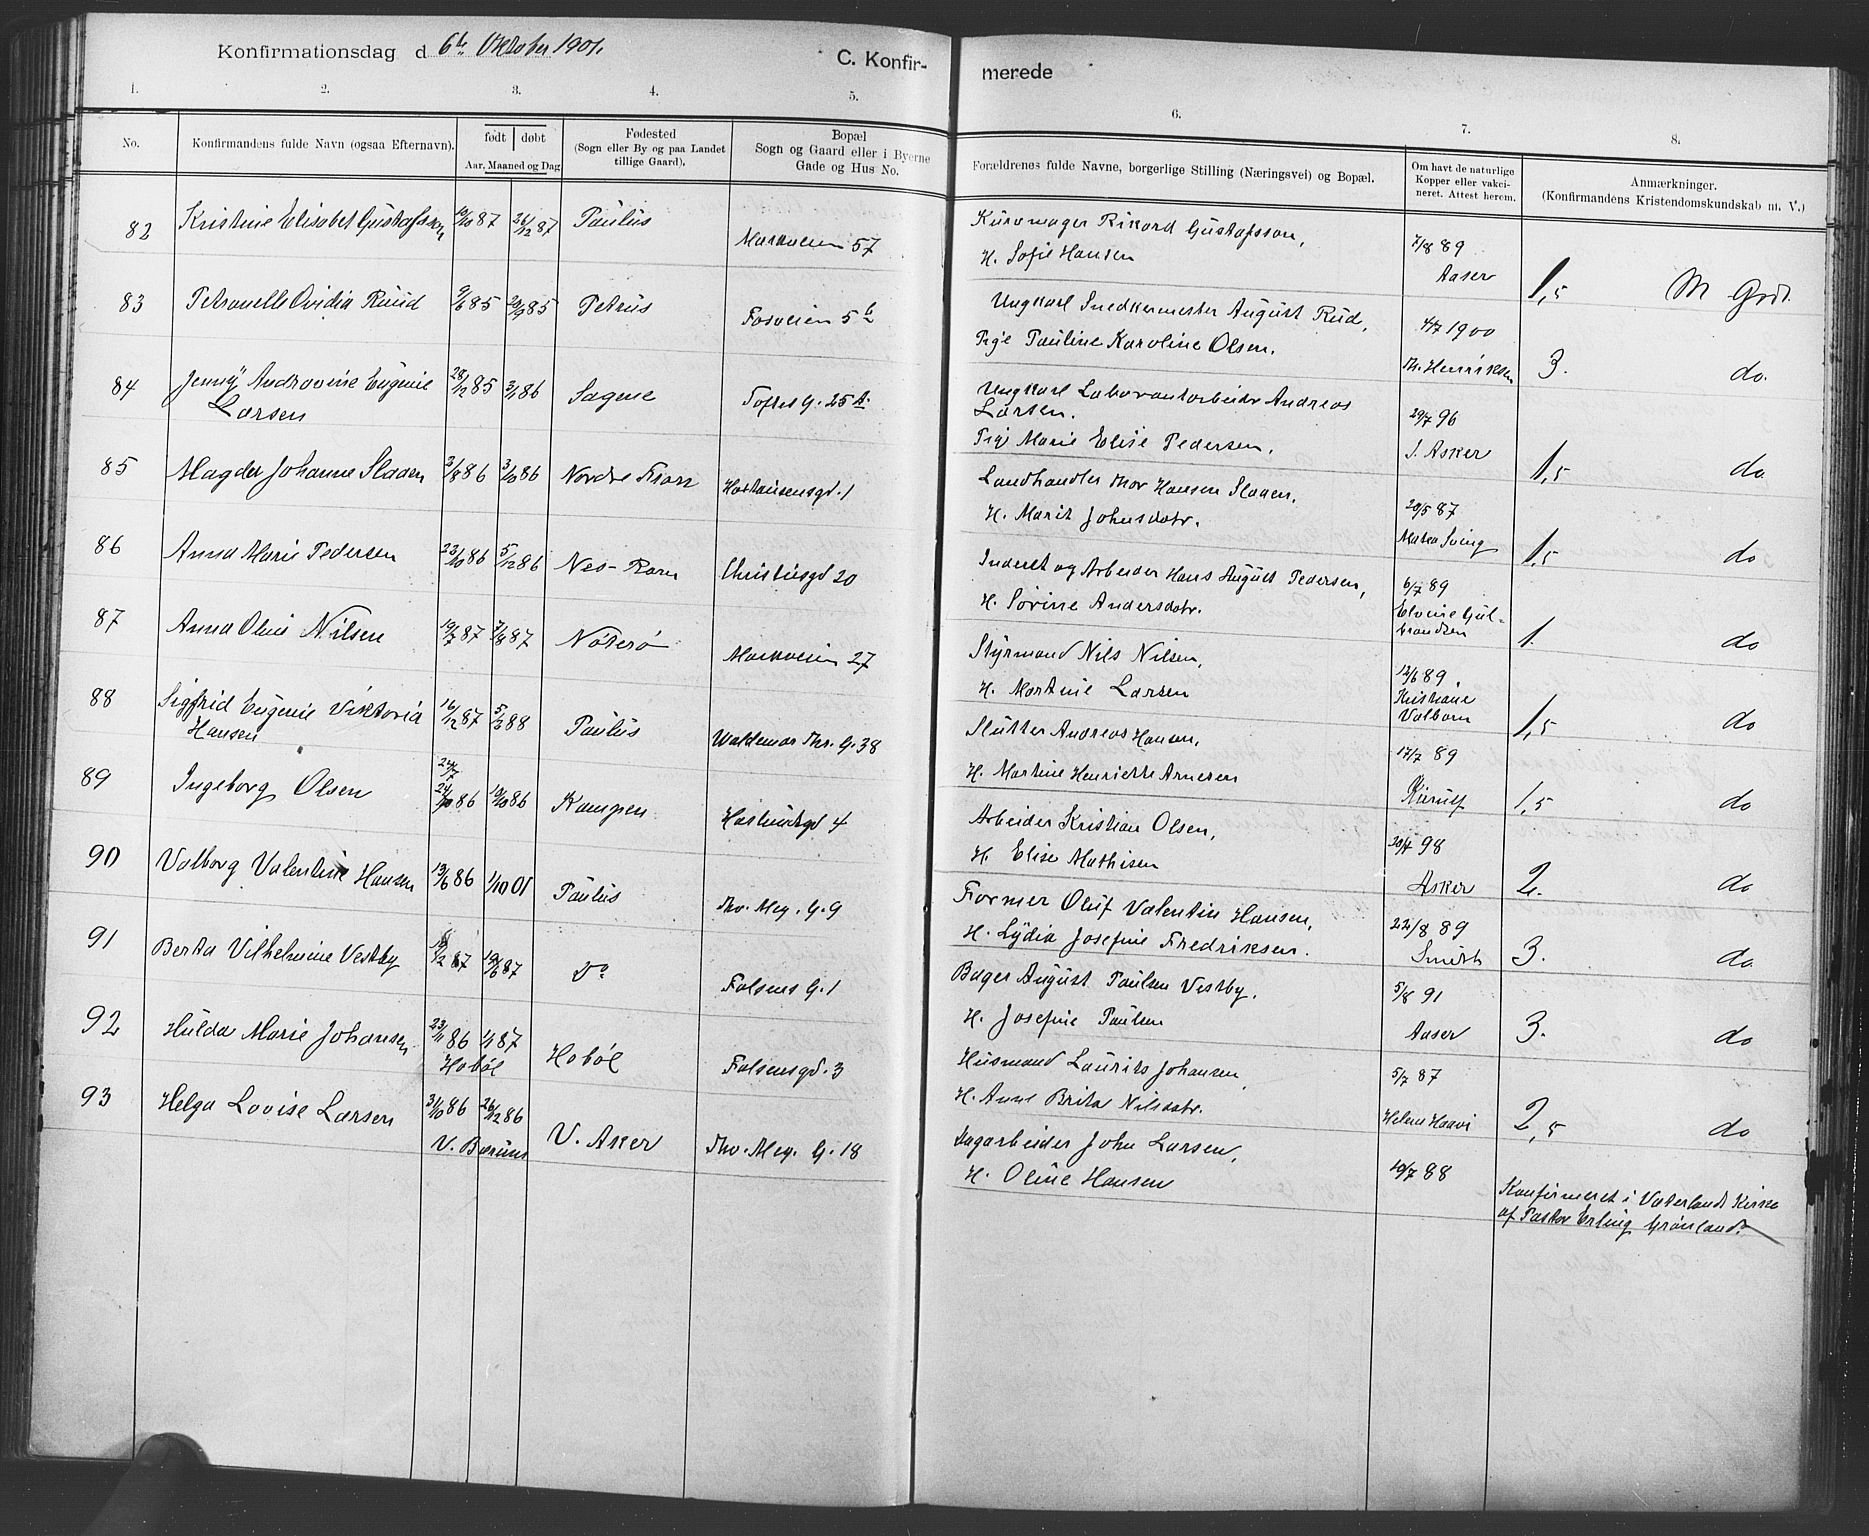 Konfirmationsdag d 6te Oktober 1901.
C. Konfir-
merede
1. 2. 3. 4. 5. 6. 7. 8.
No.
Konfirmandens fulde Navn (ogsaa Efternavn).
født døbt
Aar, Maaned og Dag
Fødested
(Sogn eller By og paa Landet
tillige Gaard).
Bopæl
Sogn og Gaard eller i Byerne
Gade og Hus No.
Forældrenes fulde Navne, borgerlige Stilling (Næringsvei) og Bopæl.
Om havt de naturlige
Kopper eller vakci-
neret. Attest herom.
Anmærkninger.
(Konfirmandens Kristendomskundskab m. V.)
82 Kristine Elisabet Gustafsson 87 26/12 87 Paulus Markveien 57
Kurvmager Rikard Gustafsson, 7/8 89
H. Sofie Hansen Aaser 1,5 M Grdt.
83 Petronelle Ovidia Ruud 9/6 85 20/9 85 Petrus Fosveien 5 b
Ungkarl Snedkermester August Rud, 4/7 1900
Pige Pauline Karoline Olsen. Th. Henriksen 3. do.
84 Jenny Androvine Eugenie 28/12 85 3/1 86 Sagene Toftes G. 25 A.
Larsen
Ungkarl Laborantarbeider Andreas
Larsen. 29/7 96
Pige Marie Elise Pedersen. J. Asker 1,5 do
85 Magda Johanne Slaaen 3/8 86 3/10 86 Nordre Fron Haxthausensgd. 1
Landhandler Thor Hansen Slaaen, 20/5 87
H. Marit Johnsdatr. 1,5 do
86 Anna Marie Pedersen 23/10 86 5/12 86 Nes-Rom. Christiesgd 20
Inderst og Arbeider Hans August Pedersen, 6/7 89
H. Sørine Andersdatr. Elvine Gul-
brandsen 1. do
87 Anna Oline Nilsen 19/7 87 7/8 87 Nøterø Markveien 27
Styrmand Nils Nilsen, 12/6 89.
H. Martine Larsen Kristiane
Valborn 1,5 do
88 Sigfrid Eugenie Viktoria 16/12 87 5/3 88 Paulus Waldemar Thr. G. 38
Hansen
Slutter Andreas Hansen, 17/7 89
H. Martine Henriette Arnesen Kierulf 1,5 do
89 Ingeborg Olsen 24/7 86 10/10 86 Kampen Haslumsgd 4
Arbeider Kristian Olsen, 20/4 98
H. Elise Mathisen Asker 2. do
90 Valborg Valentine Hansen 13/6 86 1/10 01 Paulus Thv. Meg. G. 9
Former Oluf Valentin Hansen, 22/8 89
H. Lydia Josefine Fredriksen. Smith 3. do
91 Berta Vilhelmine Vestby 87 19/6 87 do Falsens G. 1
Bager August Paulsen Vestby, 5/8 91
H. Josefine Paulsen Aaser 3. do
92 Hulda Marie Johansen 23/11 86 1/1 87 Hobøl Falsensgd. 3
Hobøl
Husmand Laurits Johansen, 5/7 87
H. Anne Brita Nilsdatr. Helene Haavi 2,5 do
93 Helga Lovise Larsen 31/10 86 26/12 86 V. Aker Thv. Meg. G. 18
V. Bærum
Dagarbeider John Larsen, 10/7 88
H. Oline Hansen
Konfirmeret i Vaterlands Kirke
af Pastor Erling Grønland.